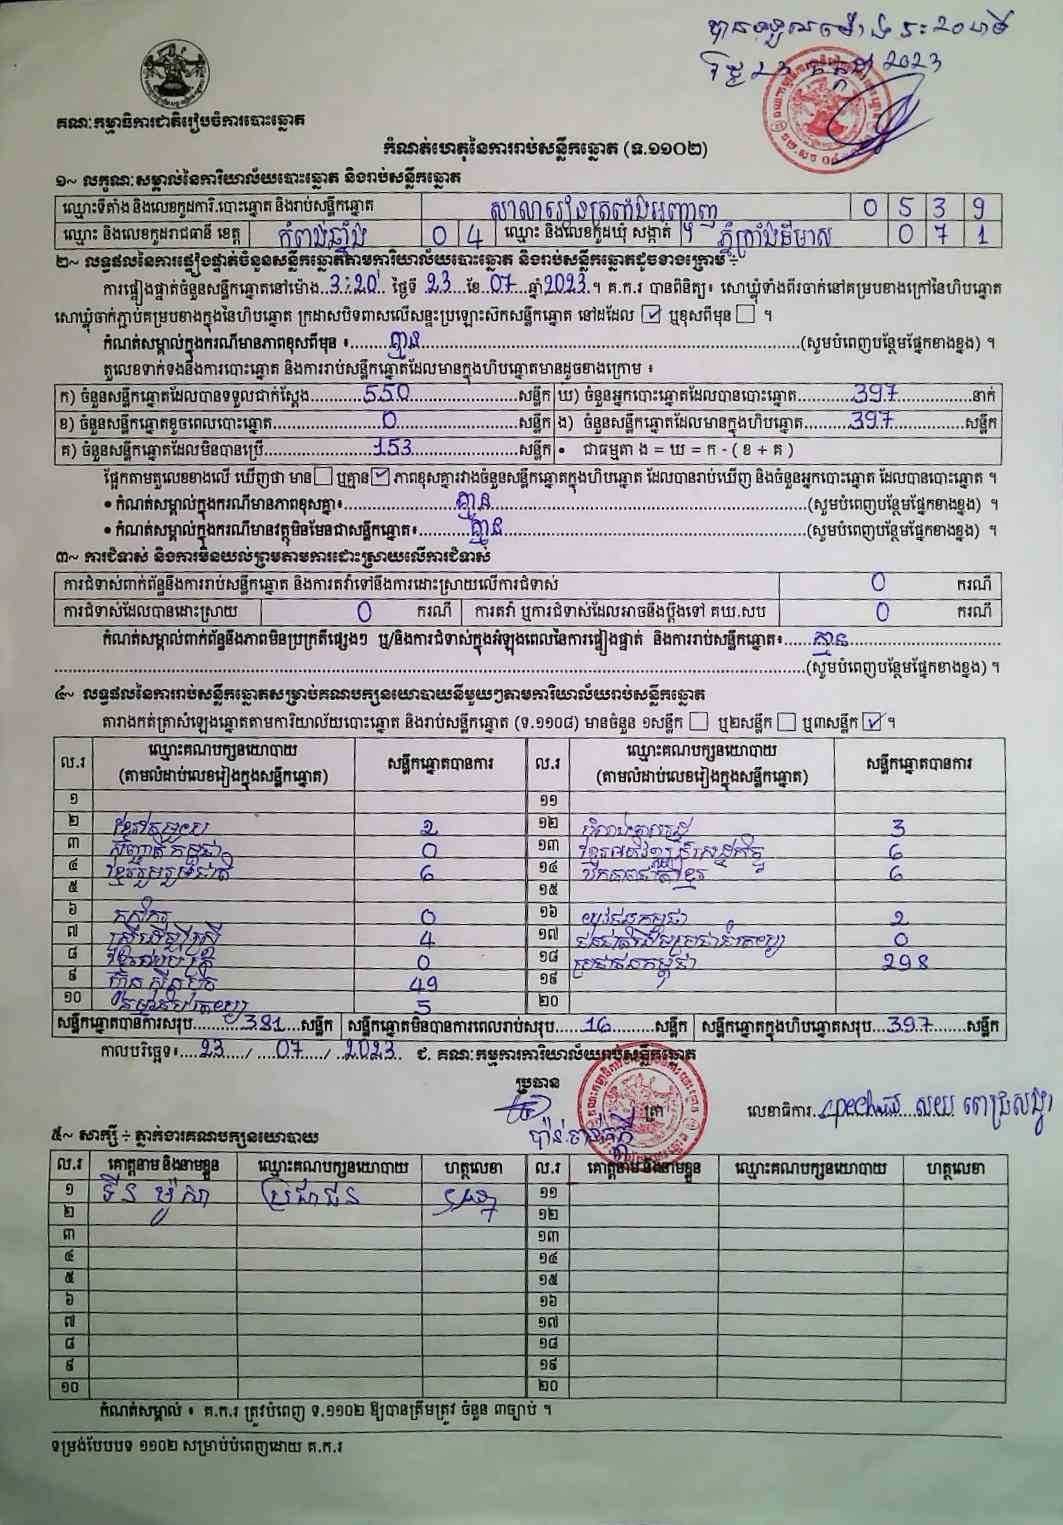 បានទទួលម៉ោង ៖ 20 នាទី
ថ្ងៃ 23 កក្កដា 2023
គណៈកម្មាធិការជាតិរៀបចំការបោះឆ្នោត
កំណត់ហេតុនៃការរាប់សន្លឹកឆ្នោត (ទ.១១០២)
១~ លក្ខណៈសម្គាល់នៃការិយាល័យបោះឆ្នោត និងរាប់សន្លឹកឆ្នោត
ឈ្មោះទីតាំង និងលេខកូដការិ.បោះឆ្នោត និងរាប់សន្លឹកឆ្នោត សាលារៀនត្រពាំងអញ្ចាញ 0 5 3 9
ឈ្មោះ និងលេខកូដរាជធានី ខេត្ត កំពង់ឆ្នាំង 0 4 ឈ្មោះ និងលេខកូដឃុំ សង្កាត់ ភ្នំក្រាំងដីមាស 0 7 1
២~ លទ្ធផលនៃការផ្ទៀងផ្ទាត់ចំនួនសន្លឹកឆ្នោតតាមការិយាល័យបោះឆ្នោត និងរាប់សន្លឹកឆ្នោតដូចខាងក្រោម ÷
ការផ្ទៀងផ្ទាត់ចំនួនសន្លឹកឆ្នោតនៅម៉ោង...3:20...ថ្ងៃទី 23...ខែ...07...ឆ្នាំ2023.។ គ.ក.រ បានពិនិត្យ៖ សោឃ្លុំទាំងពីរចាក់នៅគម្របខាងក្រៅនៃហិបឆ្នោត
សោឃ្លុំចាក់ភ្ជាប់គម្របខាងក្នុងនៃហិបឆ្នោត ក្រដាសបិទពាសលើសន្ទះប្រឡោះសិកសន្លឹកឆ្នោត នៅដដែល ☑ ឬខុសពីមុន ☐ ។
កំណត់សម្គាល់ក្នុងករណីមានភាពខុសពីមុន ៖........គ្មាន........(សូមបំពេញបន្ថែមផ្នែកខាងខ្នង) ។
តួលេខទាក់ទងនឹងការបោះឆ្នោត និងការរាប់សន្លឹកឆ្នោតដែលមានក្នុងហិបឆ្នោតមានដូចខាងក្រោម ៖
ក) ចំនួនសន្លឹកឆ្នោតដែលបានទទួលជាក់ស្តែង........550........សន្លឹក ឃ) ចំនួនអ្នកបោះឆ្នោតដែលបានបោះឆ្នោត........397........នាក់
ខ) ចំនួនសន្លឹកឆ្នោតខូចពេលបោះឆ្នោត........0........សន្លឹក ង) ចំនួនសន្លឹកឆ្នោតដែលមានក្នុងហិបឆ្នោត........397........សន្លឹក
គ) ចំនួនសន្លឹកឆ្នោតដែលមិនបានប្រើ........153........សន្លឹក • ជាធម្មតា ង = ឃ = ក - ( ខ + គ )
ផ្អែកតាមតួលេខខាងលើ ឃើញថា មាន ☐ ឬគ្មាន ☑ ភាពខុសគ្នារវាងចំនួនសន្លឹកឆ្នោតក្នុងហិបឆ្នោត ដែលបានរាប់ឃើញ និងចំនួនអ្នកបោះឆ្នោត ដែលបានបោះឆ្នោត ។
• កំណត់សម្គាល់ក្នុងករណីមានភាពខុសគ្នា៖........គ្មាន........(សូមបំពេញបន្ថែមផ្នែកខាងខ្នង) ។
• កំណត់សម្គាល់ក្នុងករណីមានវត្ថុមិនមែនជាសន្លឹកឆ្នោត៖........គ្មាន........(សូមបំពេញបន្ថែមផ្នែកខាងខ្នង) ។
៣~ ការជំទាស់ និងការមិនយល់ព្រមតាមការដោះស្រាយលើការជំទាស់
ការជំទាស់ពាក់ព័ន្ធនឹងការរាប់សន្លឹកឆ្នោត និងការតវ៉ាទៅនឹងការដោះស្រាយលើការជំទាស់ 0 ករណី
ការជំទាស់ដែលបានដោះស្រាយ 0 ករណី ការតវ៉ា ឬការជំទាស់ដែលអាចនឹងប្តឹងទៅ គឃ.សប 0 ករណី
កំណត់សម្គាល់ពាក់ព័ន្ធនឹងភាពមិនប្រក្រតីផ្សេងៗ ឬ/និងការជំទាស់ក្នុងអំឡុងពេលនៃការផ្ទៀងផ្ទាត់ និងការរាប់សន្លឹកឆ្នោត៖........គ្មាន........
........(សូមបំពេញបន្ថែមផ្នែកខាងខ្នង) ។
៤~ លទ្ធផលនៃការរាប់សន្លឹកឆ្នោតសម្រាប់គណបក្សនយោបាយនីមួយៗតាមការិយាល័យរាប់សន្លឹកឆ្នោត
តារាងកត់ត្រាសំឡេងឆ្នោតតាមការិយាល័យបោះឆ្នោត និងរាប់សន្លឹកឆ្នោត (ទ.១១០៨) មានចំនួន ១សន្លឹក ☐ ឬ២សន្លឹក ☐ ឬ៣សន្លឹក ☑ ។
ល.រ ឈ្មោះគណបក្សនយោបាយ (តាមលំដាប់លេខរៀងក្នុងសន្លឹកឆ្នោត) សន្លឹកឆ្នោតបានការ ល.រ ឈ្មោះគណបក្សនយោបាយ (តាមលំដាប់លេខរៀងក្នុងសន្លឹកឆ្នោត) សន្លឹកឆ្នោតបានការ
១ ១១
២ 2 ១២ 3
៣ 0 ១៣ 6
៤ ខ្មែររួបរួមជាតិ 6 ១៤ ឯកភាពជាតិខ្មែរ 6
៥ ១៥
៦ កសិករ 0 ១៦ យុវជនកម្ពុជា 2
៧ ស្ត្រីដើម្បីស្ត្រី 4 ១៧ 0
៨ 0 ១៨ ប្រជាជនកម្ពុជា 298
៩ ហ៊្វុនស៊ិនប៉ិច 49 ១៩
១០ 5 ២០
សន្លឹកឆ្នោតបានការសរុប........381....សន្លឹក សន្លឹកឆ្នោតមិនបានការពេលរាប់សរុប.....16.......សន្លឹក សន្លឹកឆ្នោតក្នុងហិបឆ្នោតសរុប...397.......សន្លឹក
កាលបរិច្ឆេទ៖....23..../....07..../...2023.. ជ. គណៈកម្មការការិយាល័យរាប់សន្លឹកឆ្នោត
ប្រធាន
ត្រា លេខាធិការ
៥~ សាក្សី ÷ ភ្នាក់ងារគណបក្សនយោបាយ
ល.រ គោត្តនាម និងនាមខ្លួន ឈ្មោះគណបក្សនយោបាយ ហត្ថលេខា ល.រ គោត្តនាម និងនាមខ្លួន ឈ្មោះគណបក្សនយោបាយ ហត្ថលេខា
១ ទីន ម៉ូសា ប្រជាជន ១១
២ ១២
៣ ១៣
៤ ១៤
៥ ១៥
៦ ១៦
៧ ១៧
៨ ១៨
៩ ១៩
១០ ២០
កំណត់សម្គាល់ ៖ គ.ក.រ ត្រូវបំពេញ ទ.១១០២ ឱ្យបានត្រឹមត្រូវ ចំនួន ៣ច្បាប់ ។
ទម្រង់បែបបទ ១១០២ សម្រាប់បំពេញដោយ គ.ក.រ